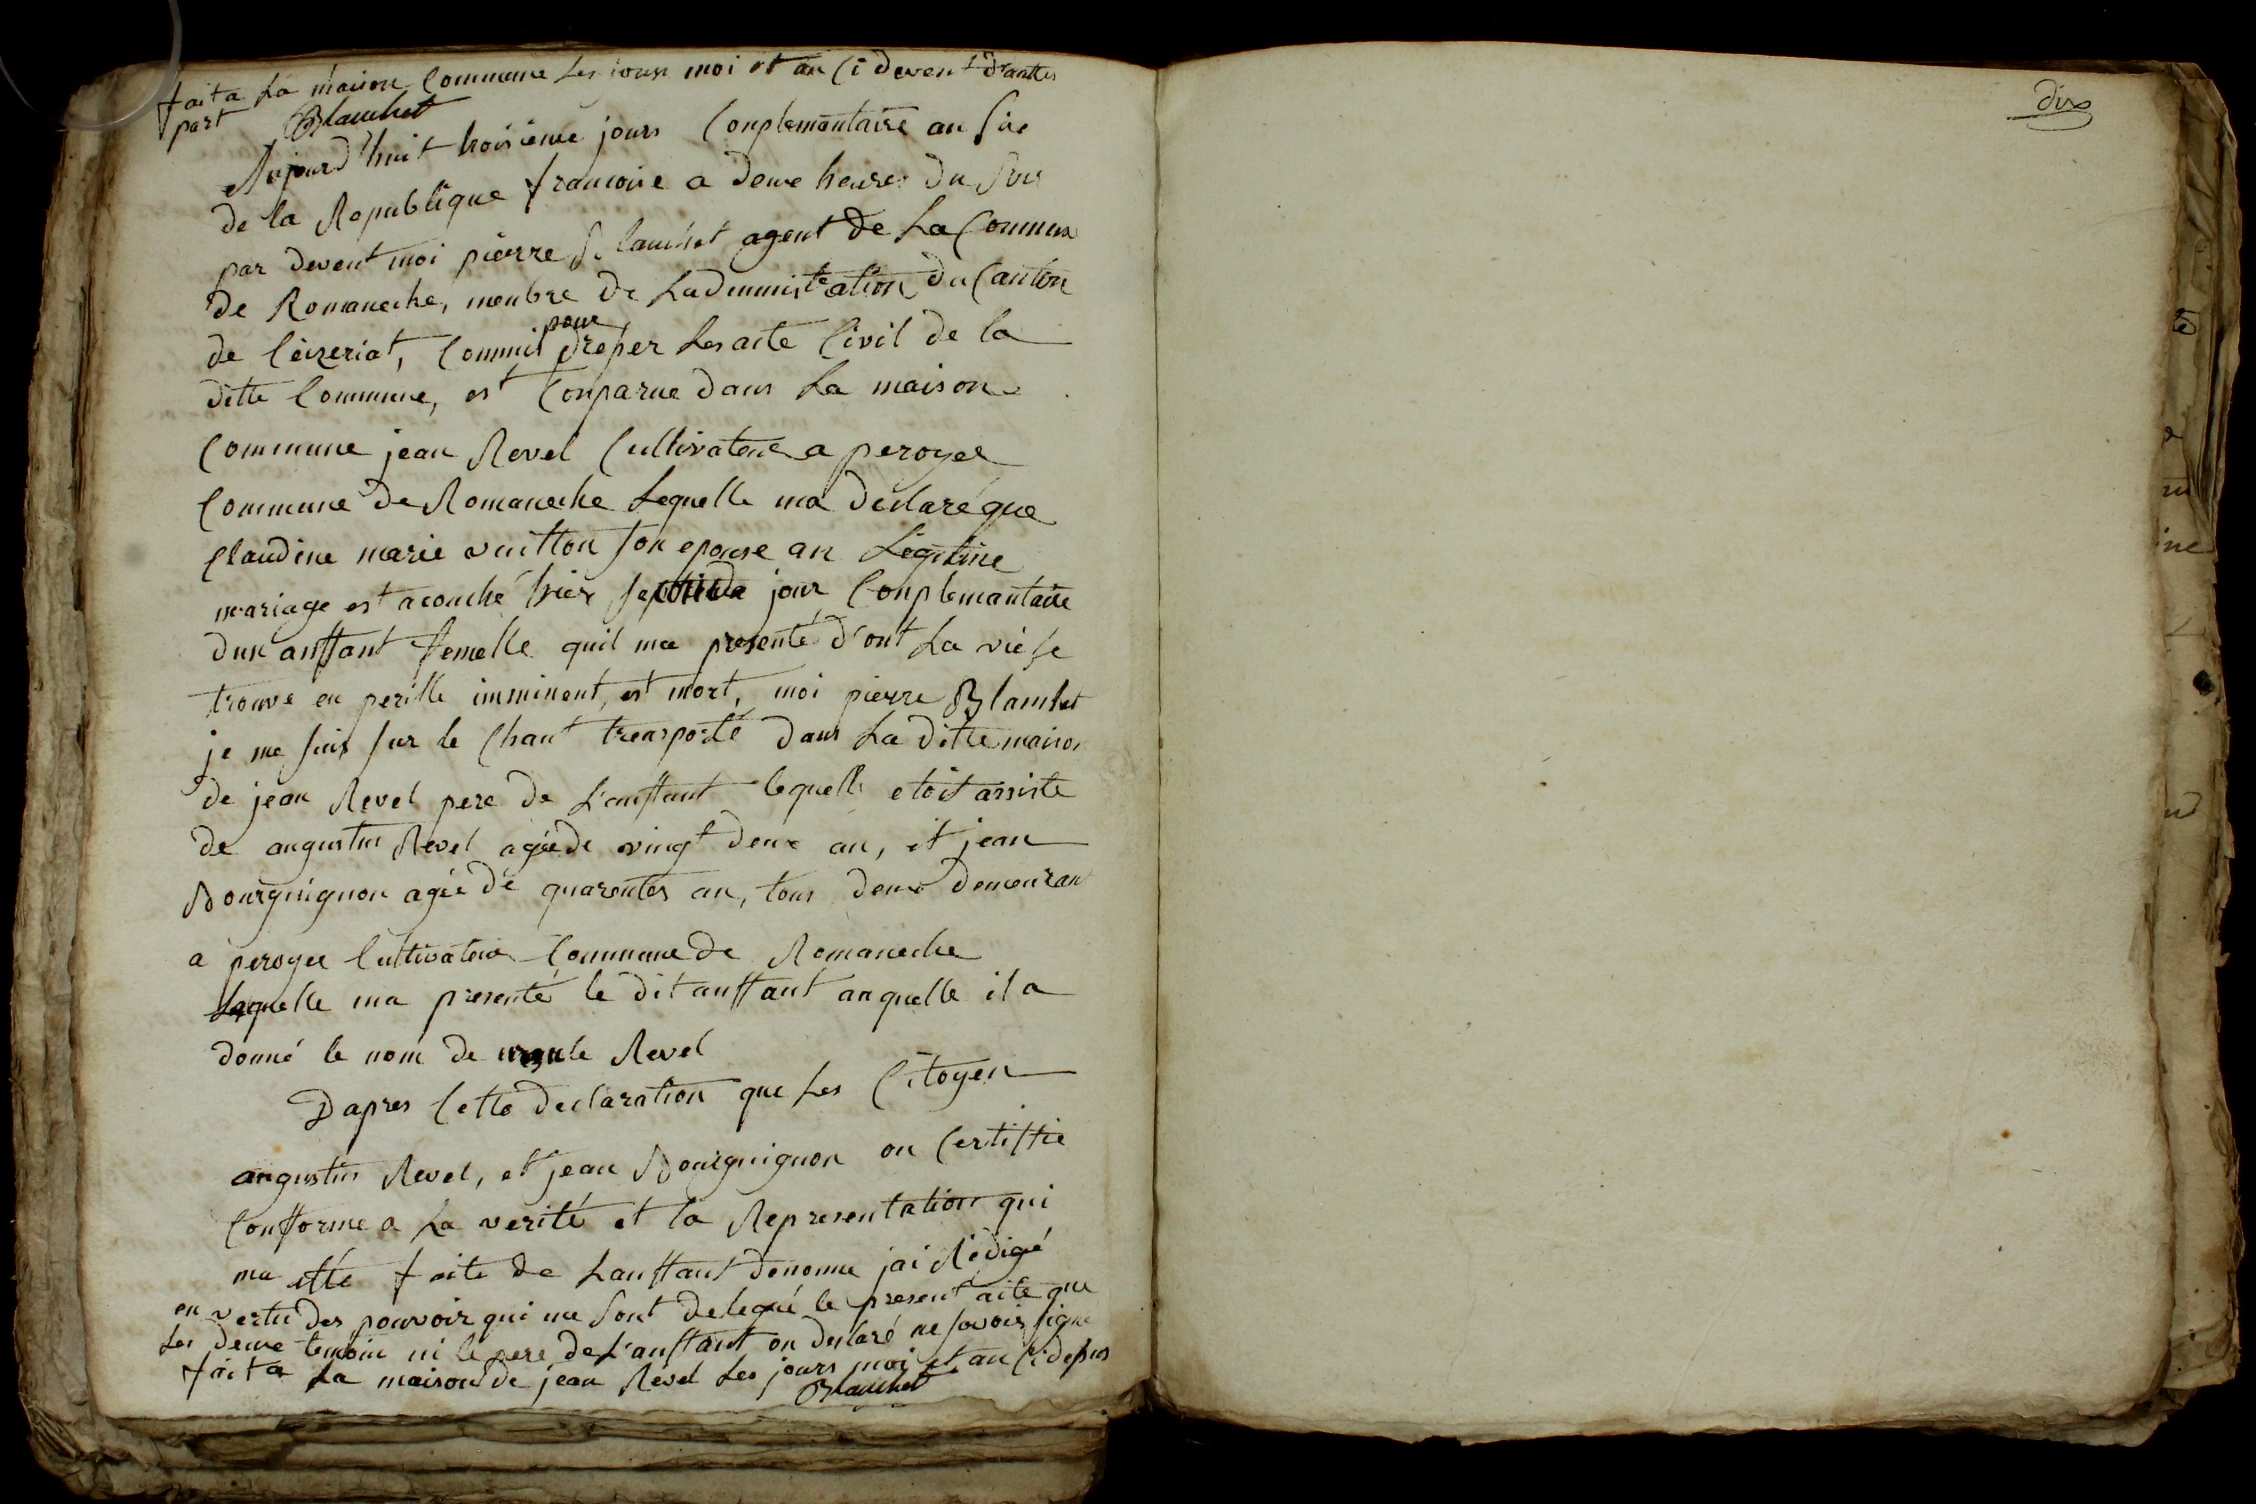 fait a La maison Commune Les jours moi et an Ci devent d'autter
part Blanchet
Aujourd'huit troisième jours Conplemantaire an Sixe
de la Republique francoise a deuxe heures du Soir
par devent moi pierre Blanchet agent de La Commune
de Romaneche, menbre de Ladministration du Canton
de Ceizeriat, Commis pour dréper Les acte Civil de la
ditte Commune, est Conparue dans La maison
Commune jean Revel Cultivateur a peroyee
Commune de Romaneche Lequelle ma declaré que
Claudine marie vuitton son epouse an Legitime
mariage est acouché hier jour Conplemantaire
dun anffant femelle quil ma presenté d'ont La vie se
trouve en perille imminent, est mort, moi pierre Blanchet
je me suis sur le Chant trensporté dans La ditte maison
de jean Revel pere de L'anffant lequelle etoit assiste
de augustin Revel agée de vingt deux an, et jean
Bourguignon agée de quarentes an, tous deux demeurant
a peroyee Cultivateur Commune de Romaneche
Lequelle ma presenté le dit anffant auquelle il a
donné le nom de ursule Revel
Dapres Cette declaration que Les Citoyen
augustin Revel, et jean Bourguignon on Certiffie
Confforme a La verité et la Representation qui
ma etté faite de Lanffant denomé jai Rédigé
en vertu des pouvoir qui me sont delegué le present acte que
Les deuxe temoin ni le pere de L'anffant on declaré ne savoir signé
fait a La maison de jean Revel Les jours moi et an Ci desus
Blanchet
dix